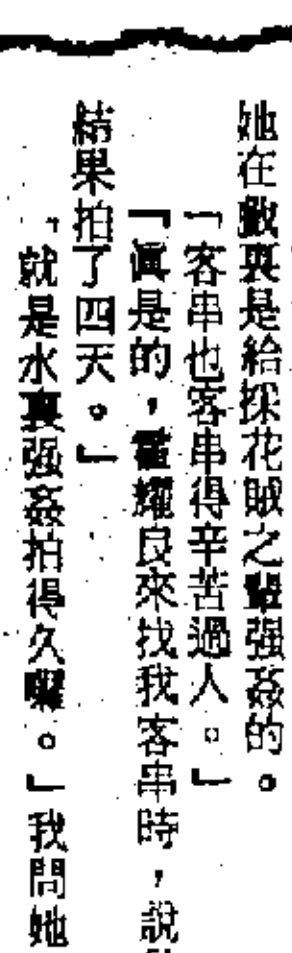 她在戲裏是給採花賊之輩强姦的。
「客串也客串得辛苦過人。」
「眞是的，霍耀良來找我客串時，說
結果拍了四天。」
「就是水裏强姦拍得久囉。」我問她